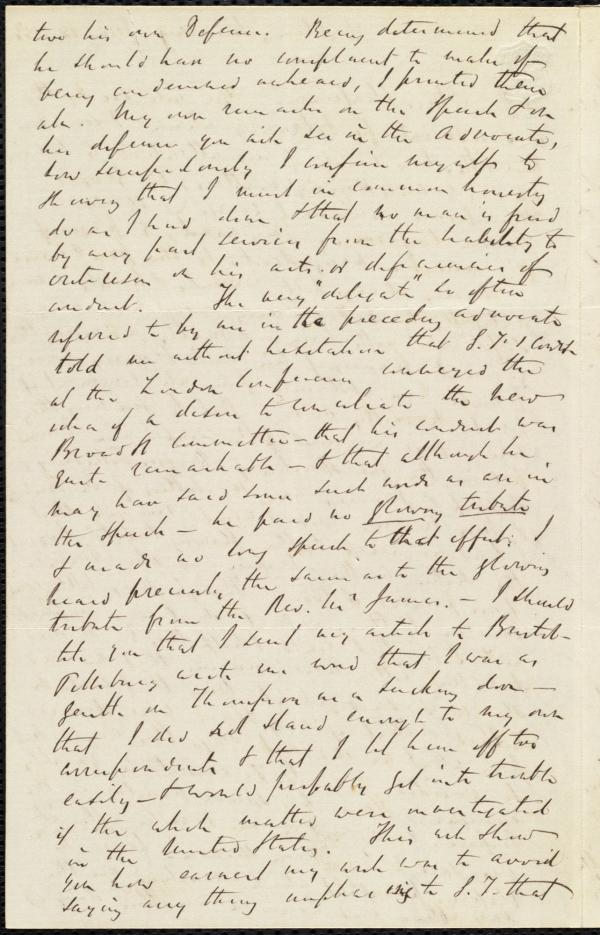 two his own Defence. Being determined that
he should have no complaint to make of
being condemned unheard, I printed them
all. My own remarks on the Speech & on
his defence you will see in the Advocate,
how scrupulously I confine myself to
showing that I must in common honesty
do as I had done & that no man is freed
by any past services from the liability to
criticism on his acts or deficiencies of
conduct. The very "delegate" so often
referred to by me in the preceding Advocate
told me without hesitation that G.T.'s conduct
at the London Conference conveyed the
idea of a desire to conciliate the New
Broad St Committee – that his conduct was
quite remarkable – & that although he
may have said some such words as are in
the speech – he paid no glowing tribute
& made no long speech to that effect; I
heard precisely the same as to the glowing
tribute from the Rev. Mr James. – I should
tell you that I sent my article to Bristol –
Pillsbury wrote me word that I was as
gentle on Thompson as a sucking dove –
that I did not stand enough to my own
correspondents & that I let him off too
easily – & would probably get into trouble
if the whole matter were investigated
in the United States. This will show
you how earnest my wish was to avoid
saying any thing unpleasing to G.T. that